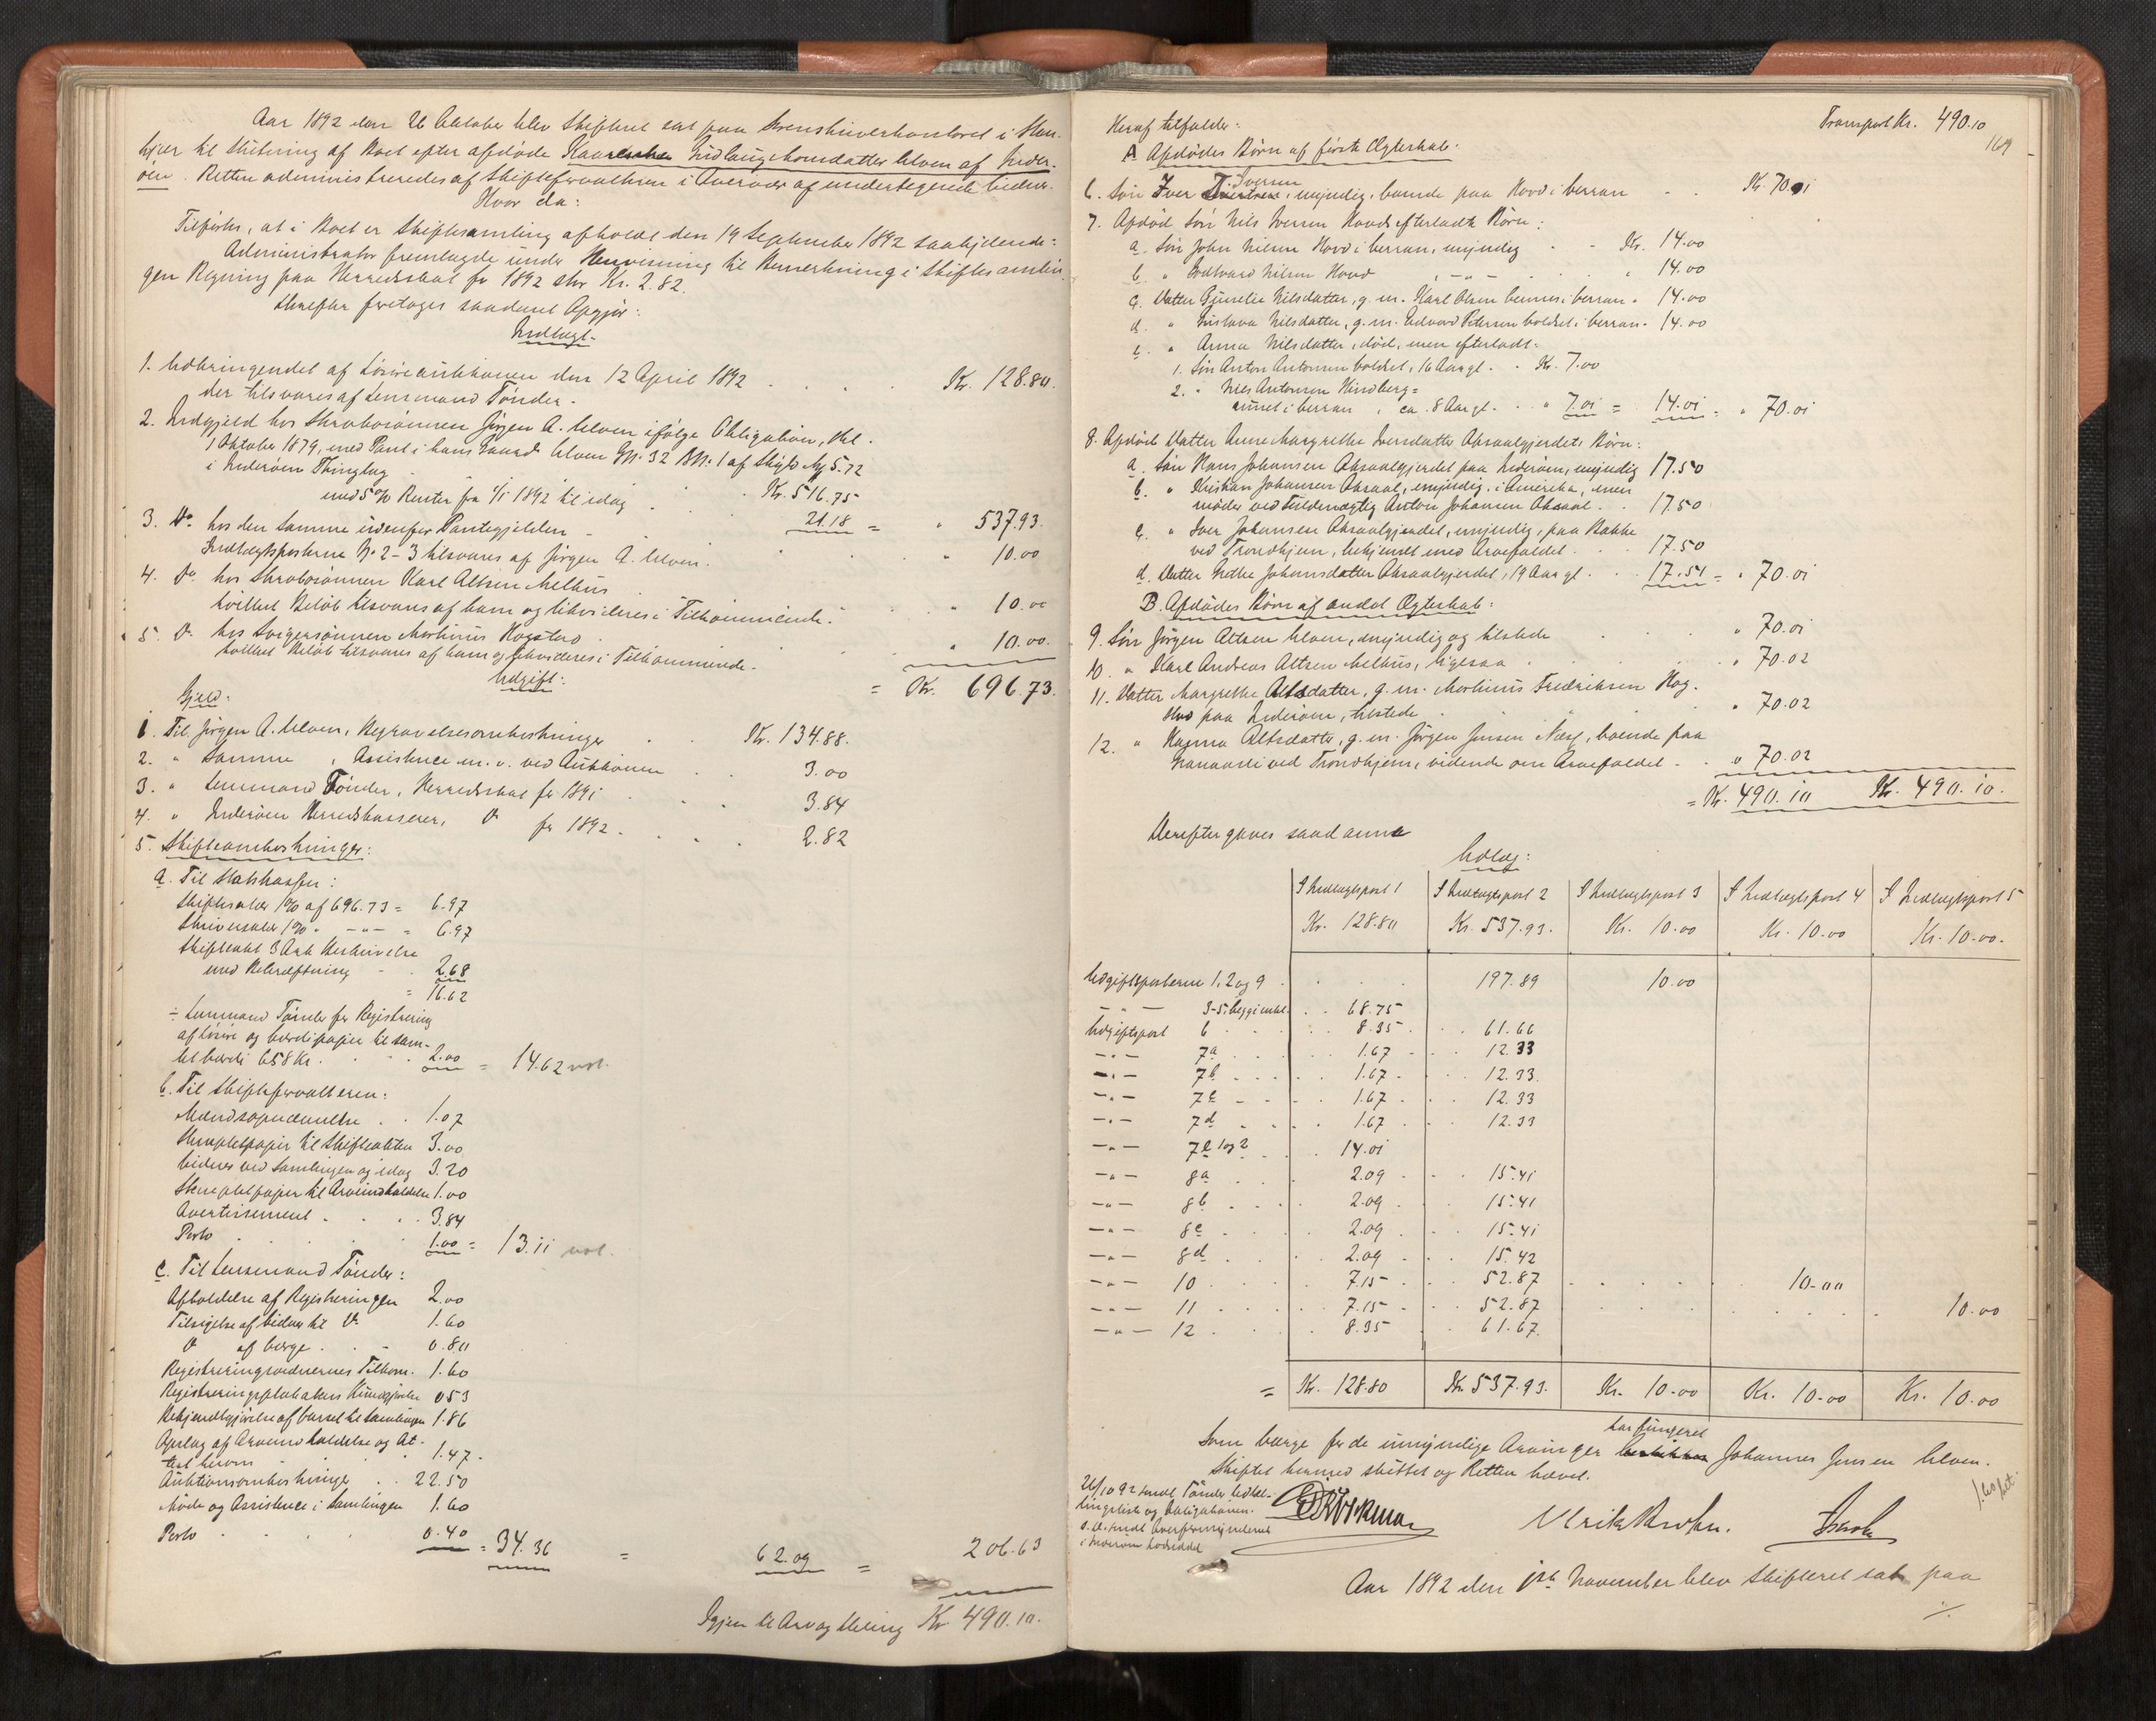 Aar 1892 den 26 Oktober blev Skifteret sat paa Sorenskriverkontoret i Sten-
kjær til Slutning af Boet efter afdøde Kaarensken Gudlaugthomsdatter Ulven af Inder-
øen. Retten administreredes af Skifteforvalteren i Overvær af undertegnede Vidner.
Hvor da:
Tilførtes, at i Boet er Skiftesamling afholdt den 19 September 1892
Administrator fremlagde under Henvisning til Bemerkning i Skiftesamlin
gen Regning paa Herredsskat for 1892 stor Kr. 2.82.
Derefter foretoges saadant Opgjør:
Indtægt.
1. Udbringendet af Løsøreauktionen den 12 April 1892 . . . . Kr. 128.80.
der tilsvares af Lensmand Tønder.
2. Indgjeld hos Skrabsønnen Jørgen A. Ulven ifølge Obligation, dat.
1 Oktober 1879, med Pant i hans Gaard Ulven Gn. 32 Bn. 1 af Skyld My 5.72
i Inderøen Thinglag . . Kr. 516.75
med 5% Renter fra 1/1 1892 til idag . . 21.18 = " 537.93.
3. Do. hos den samme udenfor Pantegjelden - . . " 10.00
Indtægtsposterne No. 2-3 tilsvares af Jørgen A. Ulven.
4. Do. hos Skrabsønnen Karl Altsen Melhus . . " 10.00
hvilket Beløb tilsvares af ham og likvideres i Tilkommende.
5. Do. hos Svigersønnen Morhinus Hogstad . . " 10.00.
hvilket Beløb tilsvares af ham og likvideres i Tilkommende.
= Kr. 696.73.
Udgift:
Gjeld:
1. Til Jørgen A. Ulven, Begravelsesomkostninger . . Kr. 134.88.
2. " Samme , Assistence m. v. ved Auktionen . . 3.00
3. " Lensmand Tønder, Herredsskat for 1891 . . 3.84
4. " Inderøen Herredskasserer, Do for 1892 . . 2.82
5. Skifteomkostninger:
a. Til Statskassen:
Skifteskat 1% af 696.73 = 6.97
Skriversalær 1% " -"- = 6.97
Skifteakt 3 Ark Beskrivelse
med Bekræftning - . 2.68
= 16.62
÷ Lensmand Tønder for Registrering
af Løsøre og Værdipapir til sam-
let Værdi 658 Kr. . . 2.00 = 14.62 not.
b. Til Skifteforvalteren:
Mændsopnævnelse . . 1.07
Stempletpapir til Skifteakten 3.00
Vidner ved Samlingen og idag 3.20
Stempletpapir til Arveindkaldelse 1.00
Avertissement . . . 3.84
Porto . . . 1.00 = 13.11 not.
c. Til Lensmand Tønder:
Afholdelse af Registreringen 2.00
Tilsigelse af Vidner til Do. 1.60
Do af Værge . - 0.80
Registreringsvidnernes Tilkom. 1.60
Registreringsplakatens Kundgjørelse 0.53
Bekjendtgjørelse af Varsel til Samlingen 1.86
Opslag af Arveindkaldelse og At-
test herom . 1.47.
Auktionsomkostninger . . 22.50
Møde og Assistence i Samlingen 1.60
Porto . . . 0.40 = 34.36 = 62.09 = 206.63
Igjen til Arv og Deling Kr. 490.10.
Transport Kr. 490.10
169
Heraf tilfalder:
A Afdødes Børn af første Ægteskab:
6. Søn Iver Iversen, myndig, boende paa Hovd i Verran - . Kr. 70.01
7. Afdød Søn Nils Iversen Hovds efterladte Børn:
a. Søn John Nilsen Hovd i Verran, umyndig . - Kr. 14.00
b. " Nilsen Hovd , -"- . . " 14.00
c. Datter Gunelie Nilsdatter, g. m. Karl Olsen i Verran . 14.00
d. " Gustava Nilsdatter, g. m. Edvard Petersen Holdset i Verran. 14.00
e. " Anna Nilsdatter, død, men efterladt.
1. Søn Anton Antonsen Holdset, 16 Aar gl. . Kr. 7.00
2. " Nils Antonsen Hindberg=
i Verran , ca. 8 Aar gl. . . " 7.01 = 14.01 = " 70.01
8. Afdøde Datter Anne Margrethe Iversdatter Aksaalgjerdets Børn:
a. Søn Hans Johansen Aksaalgjerdet paa Inderøen, myndig 17.50
b. " Kristian Johansen Aksaal, myndig, i Amerika, men
møder ved Fuldmægtig Anton Johansen Aksaal . - 17.50
c. " Iver Johansen Aksaalgjerdet, myndig, paa Bakke
ved Trondhjem, bekjendt med Arvefaldet . . 17.50
d. Datter Grethe Johansdatter Aksaalgjerdet, 19 Aar gl. . . 17.51 = " 70.01
B. Afdødes Børn af andet Ægteskab:
9. Søn Jørgen Altsen Ulven, myndig og tilstede . . " 70.01
10. " Karl Andreas Altsen Melhus, ligesaa . . " 70.02
11. Datter Margrethe Altsdatter, g. m. Morhinus Fredriksen Hog-
stad paa Inderøen, tilstede . . " 70.02
12. " Hanna Altsdatter, g. m. Jørgen Jensen Næss, boende paa
ved Trondhjem, vidende om Arvefaldet - . " 70.02
= Kr. 490.10 Kr. 490.10.
Derefter gaves saadanne
Udlæg:
I Indtægtspost 1 I Indtægtspost 2 I Indtægtspost 3 I Indtægtspost 4 I Indtægtspost 5
Kr. 128.80 Kr. 537.93. Kr. 10.00 Kr. 10.00 Kr. 10.00.
Udgiftsposterne 1, 2 og 9 . . . 197.89 10.00
-"- 3-5. begge inkl. . . 68.75
Udgiftspost 6 . . . 8.35 . . 61.66
-"- 7a . . . 1.67 . . 12.33
-"- 7b . . . 1.67 . . 12.33.
-"- 7c . . . 1.67 . . 12.33
-"- 7d . . . 1.67 . . 12.33
-"- 7e 1 og 2 . . 14.01
-"- 8a . . . 2.09 . . 15.41
-"- 8b . . . 2.09 . . 15.41
-"- 8c . . . 2.09 . . 15.41
-"- 8d . . . 2.09 . . 15.42
-"- 10 . . . 7.15 . . 52.87 . . . . 10.00
-"- 11 . . . 7.15 . . 52.87 . . . . . . 10.00
-"- 12 . . . 8.35 . . 61.67.
= Kr. 128.80 Kr. 537.93. Kr. 10.00 Kr. 10.00 Kr. 10.00
Som Værge for de umyndige Arvinger har fungeret Johannes Jensen Ulven.
Skiftet hermed sluttet og Retten hævet.
26/10 92 sendt Tønder Udbet-
lingsliste og Obligationen.
s. D. sendt Overformynderiet
i Inderøen
Ulrik Krohn.
Aar 1892 den 1ste November blev Skifteret sat paa
./.